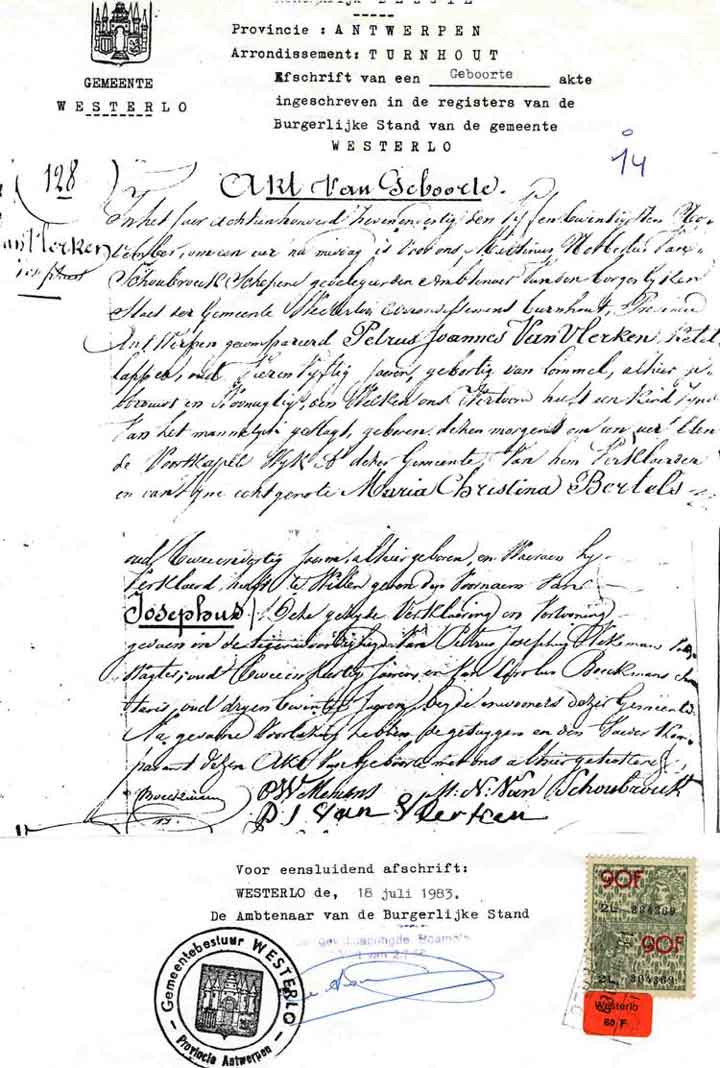 Provincie : ANTWERPEN
Arrondissement: TURNHOUT
Afschrift van een Geboorte akte
ingeschreven in de registers van de
Burgerlijke Stand van de gemeente
WESTERLO
GEMEENTE
WESTERLO
14
128
Van Vlerken
Josephus
Akt Van Geboorte.
In het jaer achtienhonderd zevenenvertig den vyfentwintigsten No-
vember, om een uer na middag is voor ons, Martinus Norbertus Van
Schoubroeck Schepene gedelegueerden Ambtenaer van den borgerlyken
Staet der Gemeente Westerloo, arrondissement Turnhout, Provincie
Antwerpen gecompareerd Petrus Joannes Van Vlerken, Ketel
lapper, oud jaeren, gebortig van Lommel, alhier ge-
trouwt en woonagtig, den welken ons vertoont heeft een kind
van het mannelyk geslagt, geboren dezen morgend om een uer
de Voortkapel Wyk dezer Gemeente, van hem Verklaerder
en van zyne echtgenote Maria Christina Bertels
oud tweeenvertig jaeren, alhier geboren, en waeraen hy
verklaerd heeft te willen geven den voornaem van
Josephus. Deze gezyde verklaering en vertooning
gedaen in de tegenwoordigheid van Petrus Josephus
oud tweeenveertig jaeren, en Jan Carolus Boeckmans
oud dryentwintig jaeren, beyde inwoners dezer Gemeente.
Na gedaene voorlezing hebben de getuygen en den Vader Com-
parant dezen Akt van Geboorte met ons alhier geteekend
Boeckmans
M: N: Van Schoubroeck
P J Van Vlerken
Voor eensluidend afschrift:
WESTERLO de, 18 juli 1983.
De Ambtenaar van de Burgerlijke Stand
Gemeentebestuur WESTERLO
Provincie Antwerpen
90F
90F
Westerlo
60 F